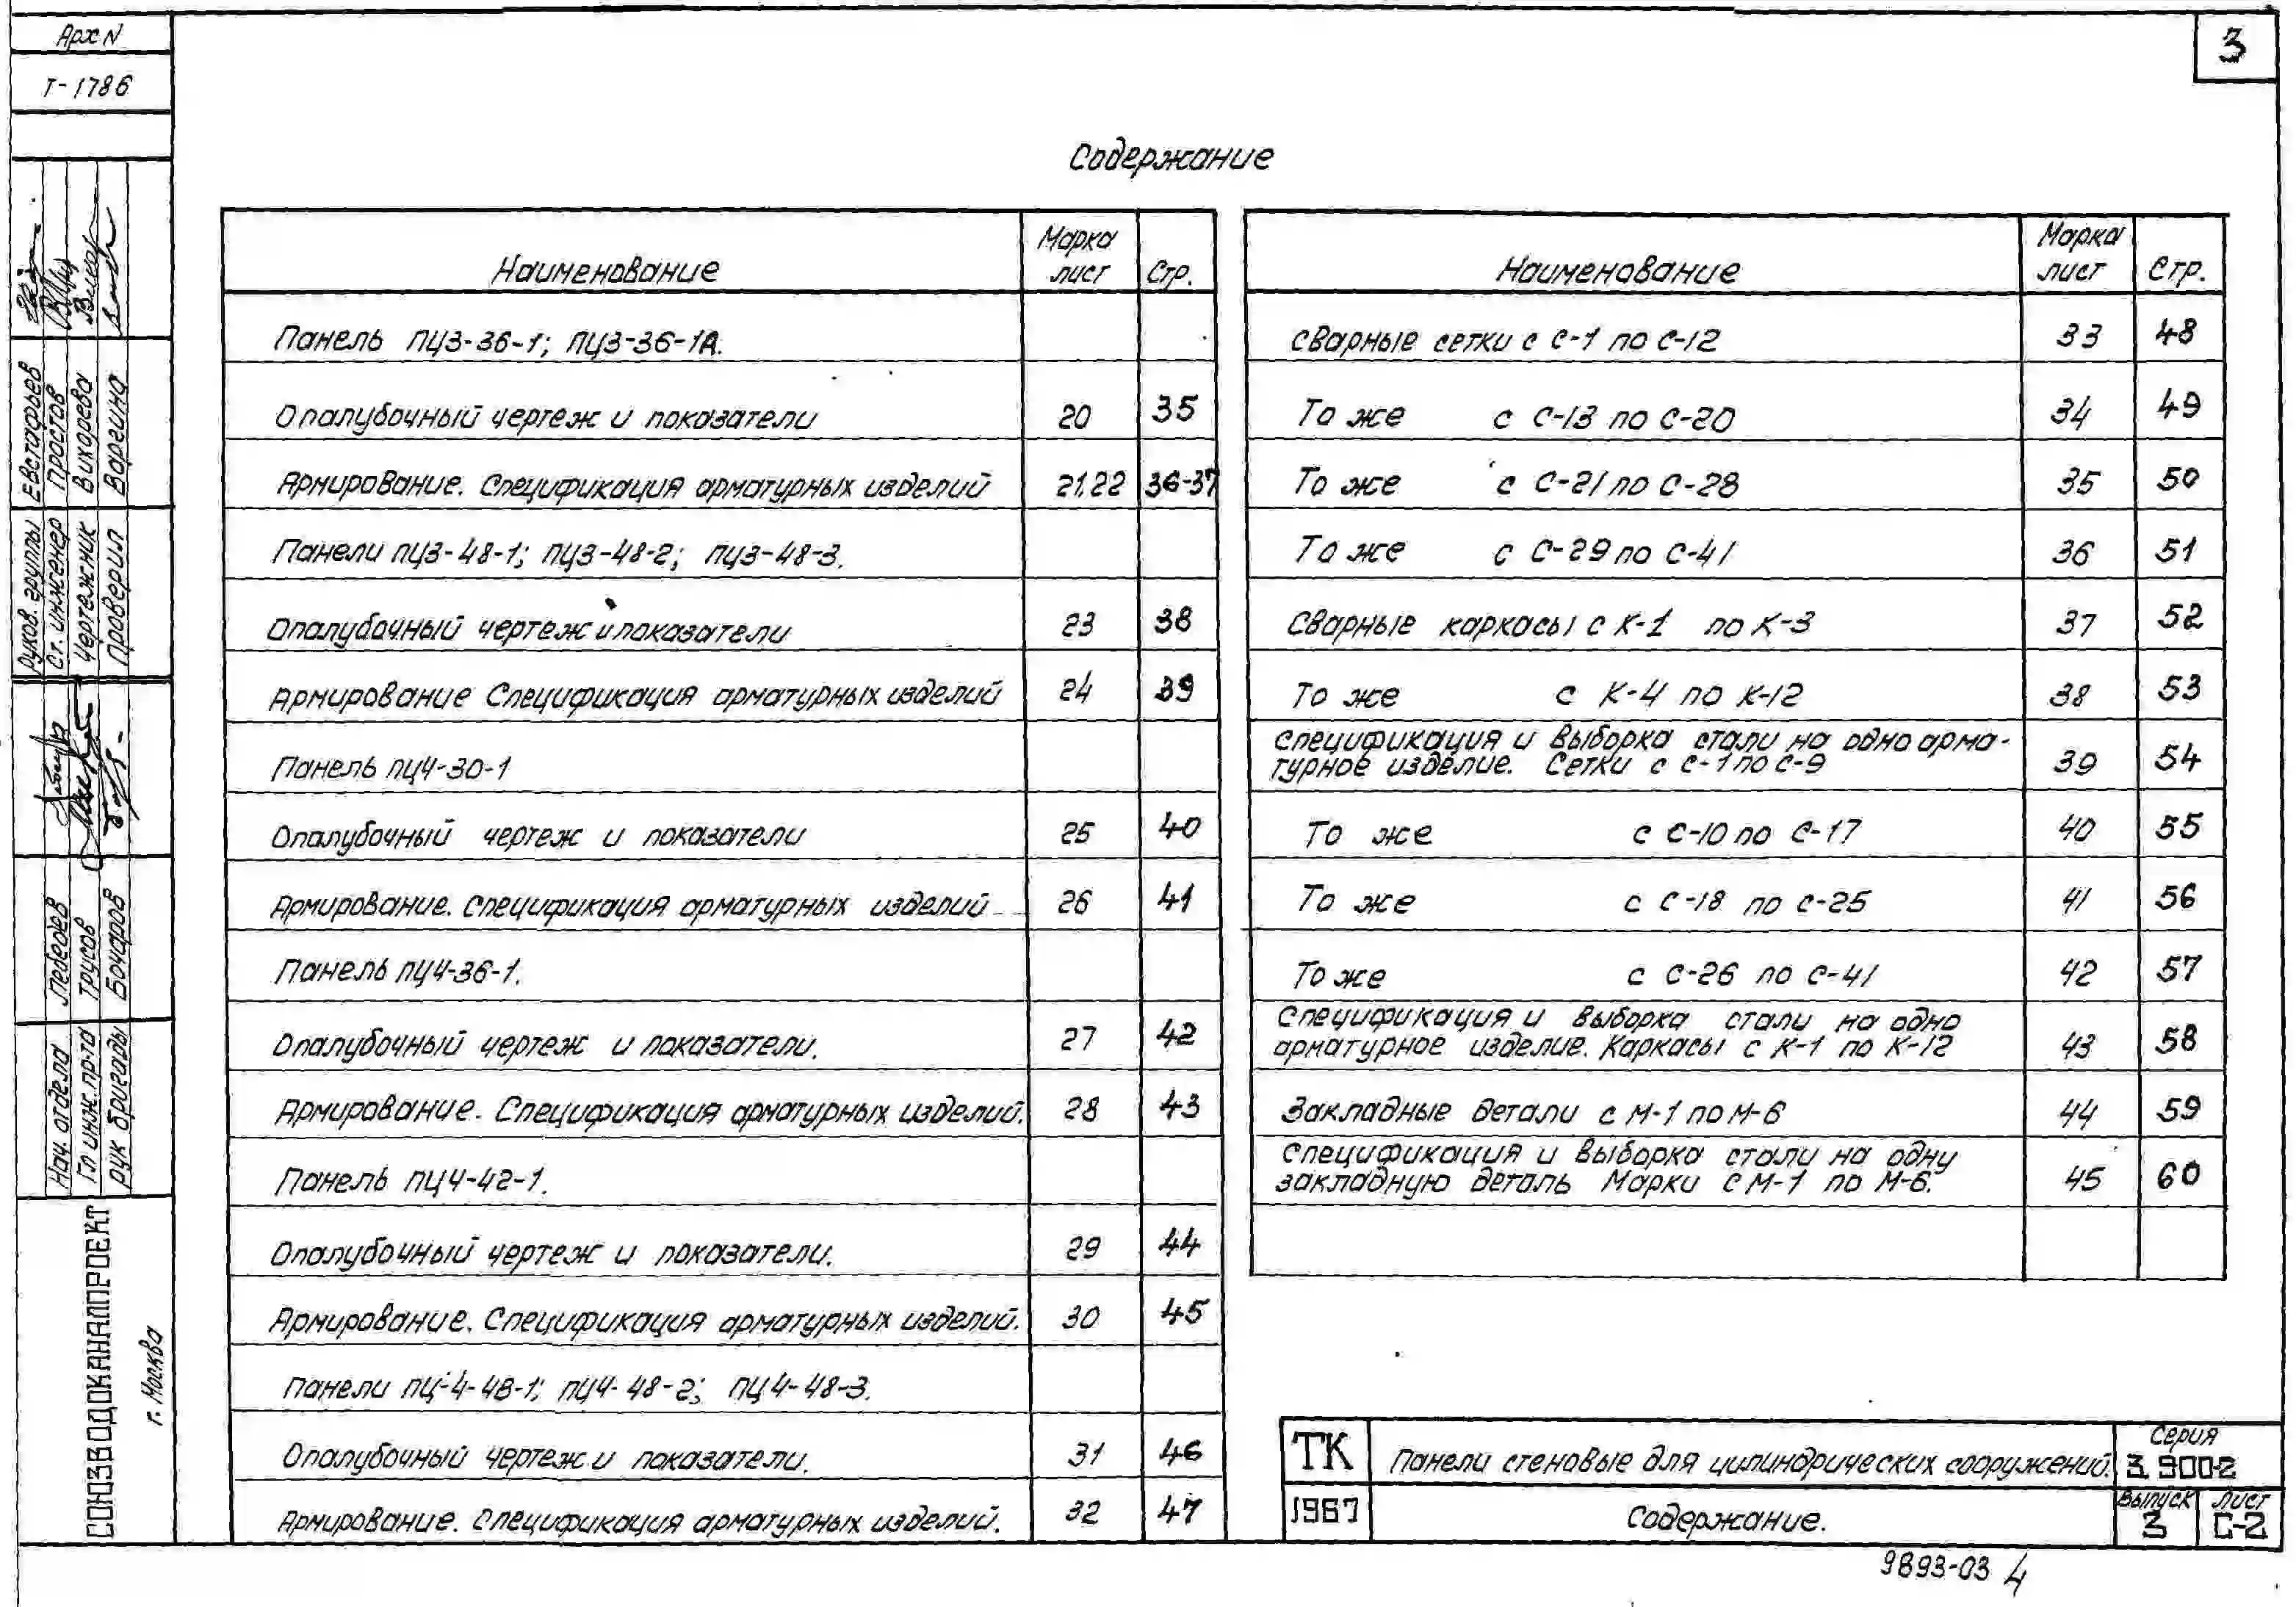 Арх N
Т-1786
3
Содержание
Наименование Марка лист Стр.
Панель ПЦ3-36-1; ПЦ3-36-1А.
Опалубочный чертеж и показатели 20 35
Армирование. Спецификация арматурных изделий 21,22 36-37
Панели ПЦ3-48-1; ПЦ3-48-2; ПЦ3-48-3.
Опалубочный чертеж и показатели 23 38
Армирование Спецификация арматурных изделий 24 39
Панель ПЦ4-30-1
Опалубочный чертеж и показатели 25 40
Армирование. Спецификация арматурных изделий 26 41
Панель ПЦ4-36-1.
Опалубочный чертеж и показатели. 27 42
Армирование. Спецификация арматурных изделий. 28 43
Панель ПЦ4-42-1.
Опалубочный чертеж и показатели. 29 44
Армирование. Спецификация арматурных изделий. 30 45
Панели ПЦ-4-48-1; ПЦ4-48-2; ПЦ4-48-3.
Опалубочный чертеж и показатели. 31 46
Армирование. Спецификация арматурных изделий. 32 47
Наименование Марка лист Стр.
Сварные сетки с С-1 по С-12 33 48
То же с С-13 по С-20 34 49
То же с С-21 по С-28 35 50
То же с С-29 по С-41 36 51
Сварные каркасы с К-1 по К-3 37 52
То же с К-4 по К-12 38 53
Спецификация и выборка стали на одно арма-
турное изделие. Сетки с С-1 по С-9 39 54
То же с С-10 по С-17 40 55
То же с С-18 по С-25 41 56
То же с С-26 по С-41 42 57
Спецификация и выборка стали на одно
арматурное изделие. Каркасы с К-1 по К-12 43 58
Закладные детали с М-1 по М-6 44 59
Спецификация и выборка стали на одну
закладную деталь Марки с М-1 по М-6. 45 60
Руков. группы Евстафьев
Ст. инженер Простов
Чертежник Вихорева
Проверил Варгина
Нач. отдела Лебедев
Гл инж. пр-та Трусов
Рук бригады Бочаров
СОЮЗВОДОКАНАЛПРОЕКТ
г. Москва
ТК Панели стеновые для цилиндрических сооружений. Серия 3.900-2
1967 Содержание. Выпуск 3 Лист С-2
9893-03 4